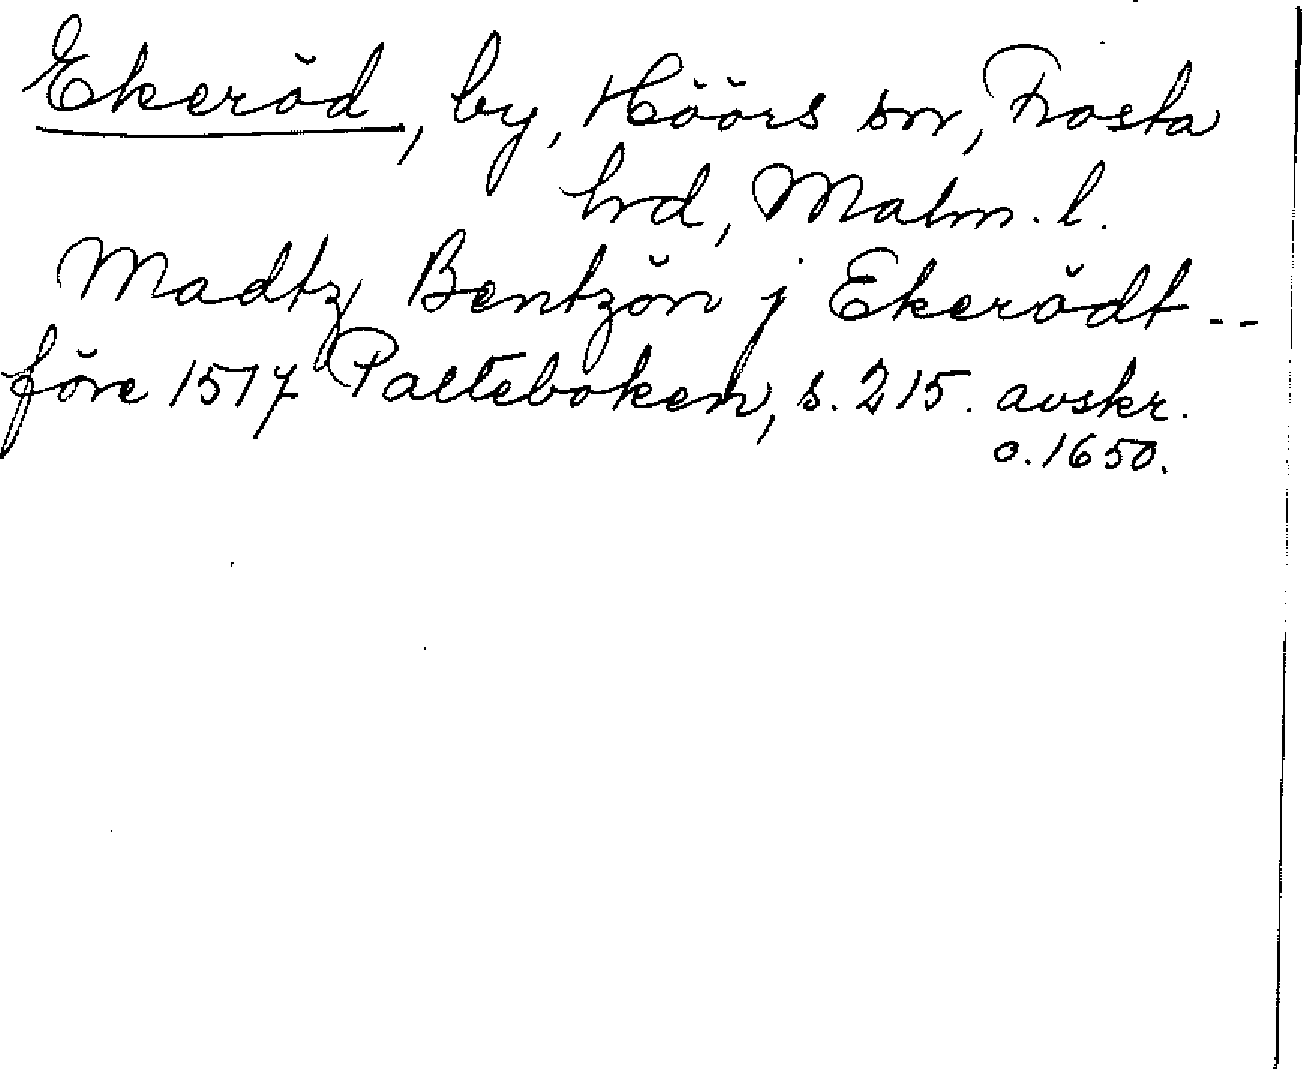 Ekeröd, by, Höörs sn, Frosta
hrd, Malm. l.
Madtz Bentzön j Ekerödt --
före 1517 Palteboken, s. 215. avskr.
o. 1650.